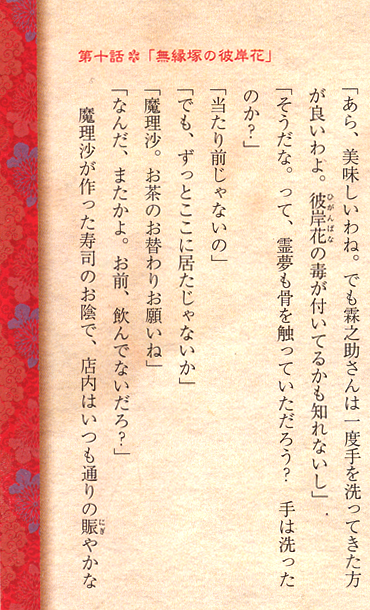 第十話✽「無縁塚の彼岸花」
「あら、美味しいわね。でも霖之助さんは一度手を洗ってきた方
が良いわよ。彼岸花の毒が付いてるかも知れないし」
「そうだな。って、霊夢も骨を触っていただろう？　手は洗った
のか？」
「当たり前じゃないの」
「でも、ずっとここに居たじゃないか」
「魔理沙。お茶のお替わりお願いね」
「なんだ、またかよ。お前、飲んでないだろ？」
魔理沙が作った寿司のお陰で、店内はいつも通りの賑やかな